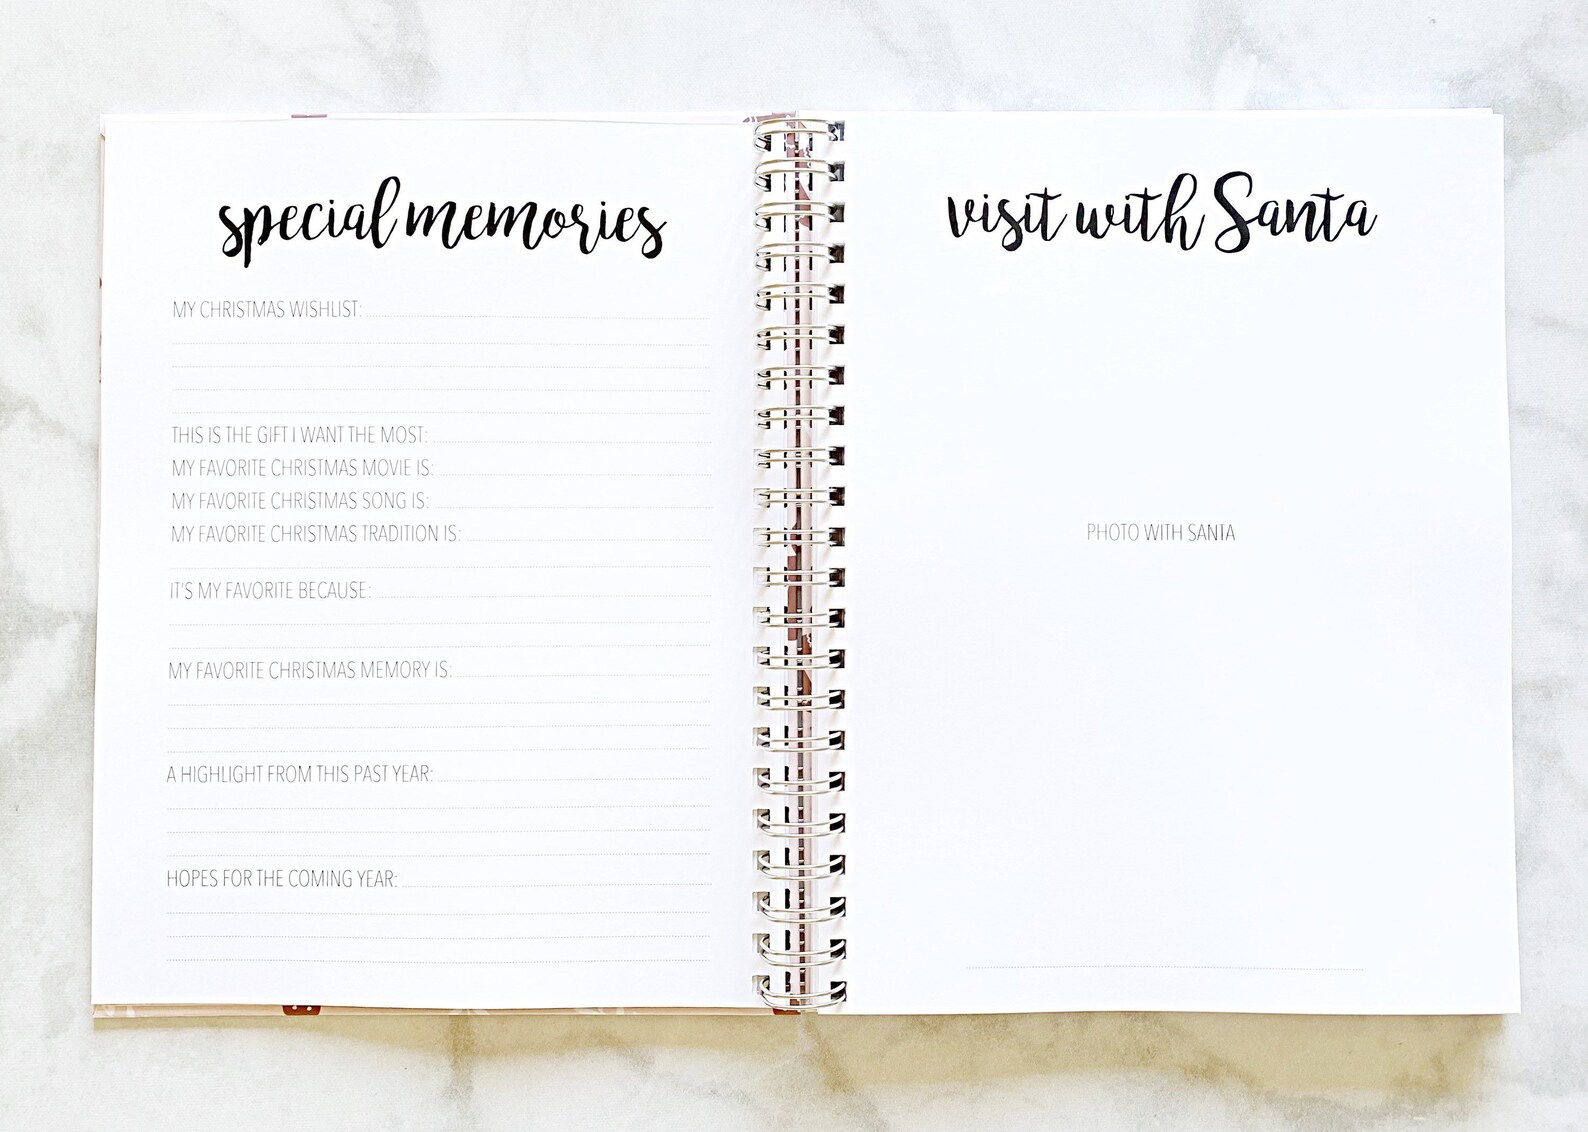 special memories
MY CHRISTMAS WISHLIST:
THIS IS THE GIFT I WANT THE MOST:
MY FAVORITE CHRISTMAS MOVIE IS:
MY FAVORITE CHRISTMAS SONG IS:
MY FAVORITE CHRISTMAS TRADITION IS:
IT'S MY FAVORITE BECAUSE:
MY FAVORITE CHRISTMAS MEMORY IS:
A HIGHLIGHT FROM THIS PAST YEAR:
HOPES FOR THE COMING YEAR:
visit with Santa
PHOTO WITH SANTA